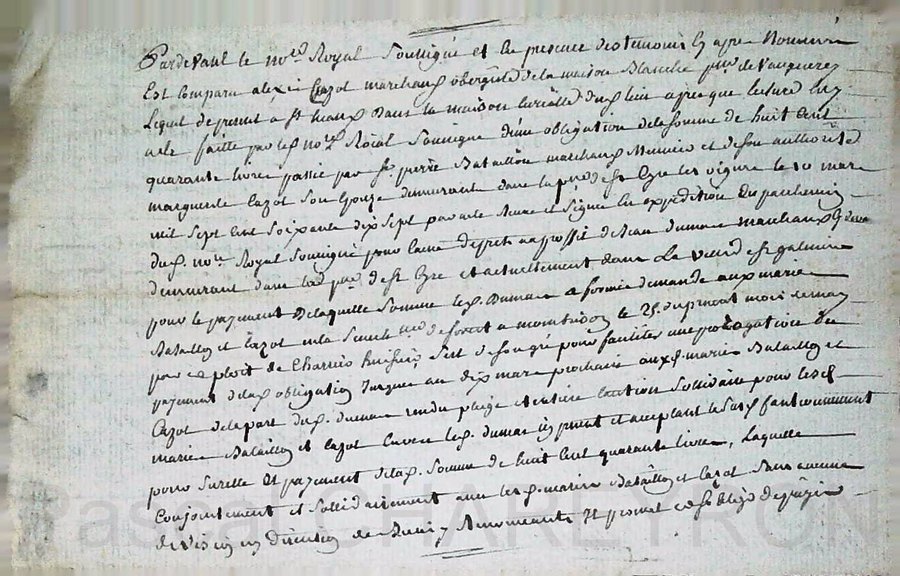 Pardevant le no.re Royal Soussigné et En presence des temoins Cy apres Nommés
Est Comparu alexis Cazot marchand obergiste de la maison Blanche p.sse de Vauguerey
Lequel depresent a St maur Dans la maison Curialle dud. lieu apres que lecture luy
a ete faitte par led. no.re Roial Soussigné d'une obligation de la somme de huit Cent
quarante livres passée par Sr. pierre Bataillon marchand Meunier et de son authorité
marguerite Cazot Son Epouse demeurant dans la p.sse de St Cyr les vigne le 10 mars
mil sept Cent Soixante dix Sept pardevant Reçue et Signée En expedition En parchemin
dud. no.re Royal Soussigné pour Cause de prets au proffit de Jean dumas marchand Cy devant
demeurant dans lad. p.sse de St Cyr et actuellement dans La ville de St galmier
pour le payement De laquelle Somme led. Dumas a formé demande aux mariés
Bataillon et Cazot En la Senechaussée de forest a montbrison le 25. du present mois de may
par exploit de Charrin huissier, S'est de Son gré pour faciliter une prorogation de
payement de lad. obligation Jusques au dix mars prochain auxd. mariés Bataillon et
Cazot de la part dud. dumas rendu pleige et Entiere Caution Sollidaire pour lesd.
mariés Bataillon et Cazot Envers led. dumas Cy present et acceptant le tout faut Comment
pour Surette Et payement de lad. Somme de huit Cent quarante livres, Laquelle
Conjointement et Sollidairement avec lesd. mariés Bataillon et Cazot Sans aucune
division ny discution de Biens, y Renonceants Et promet et S'oblige de payer
Pascal CHAREYRON